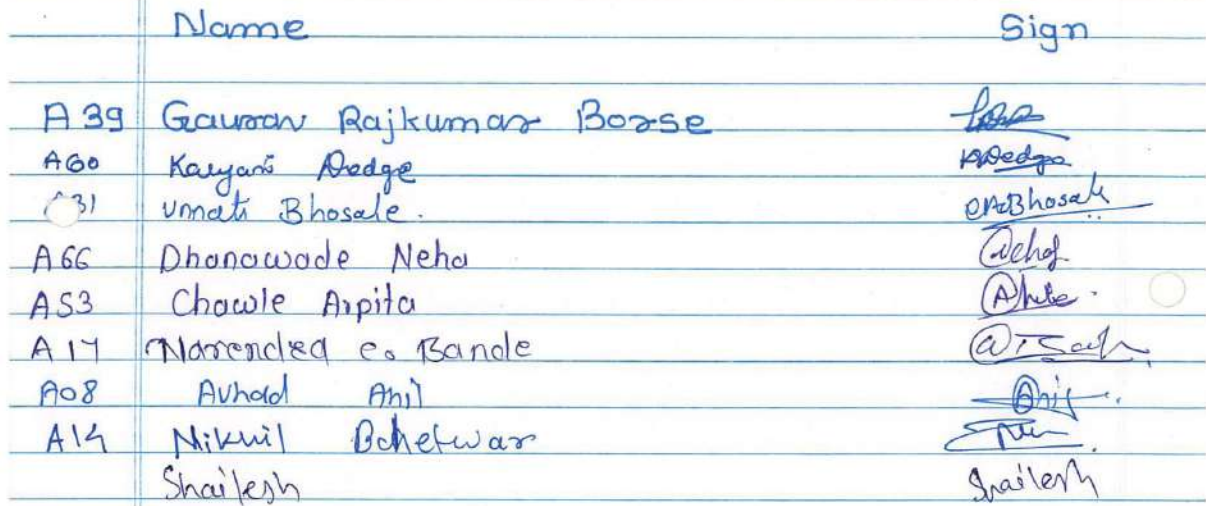 Name Sign
A 39 Gaurav Rajkumar Borse
A60 Kalyani Dedge KDedge
31 Unnati Bhosale. Bhosale
A66 Dhanawade Neha
A53 Chawle Arpita
A 17 Narendra e. Bande
A08 Avhad Anil Anil
A14 Nikhil
Shailesh Shailesh